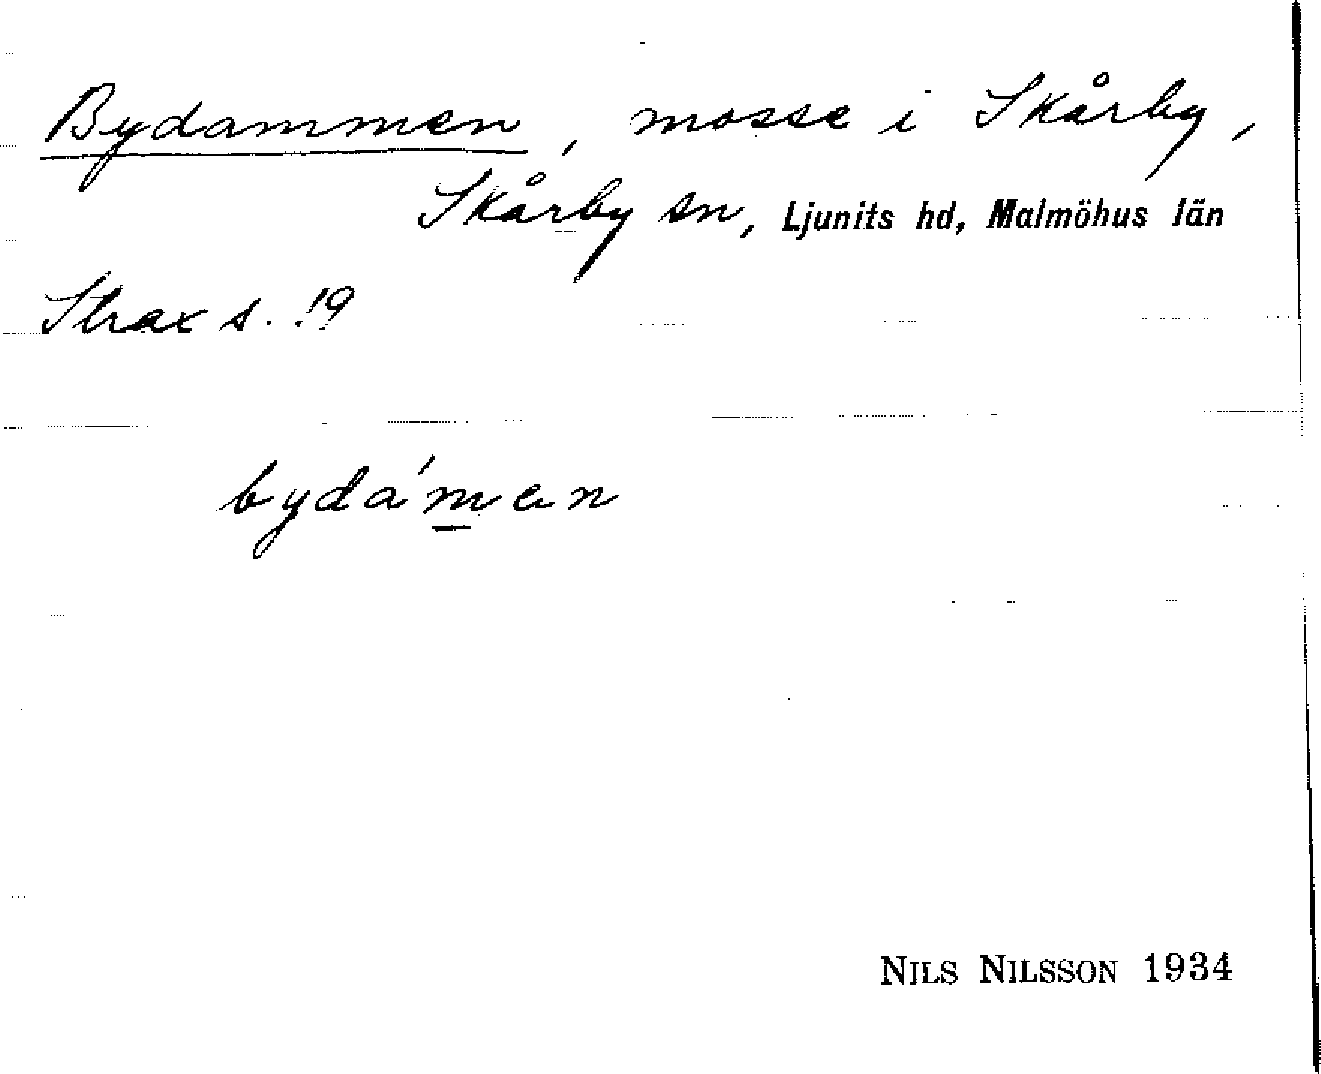 Bydammen, mosse i Skårby,
Skårby sn, Ljunits hd, Malmöhus län
Strax s. !9
bydám̲en
NILS NILSSON 1934